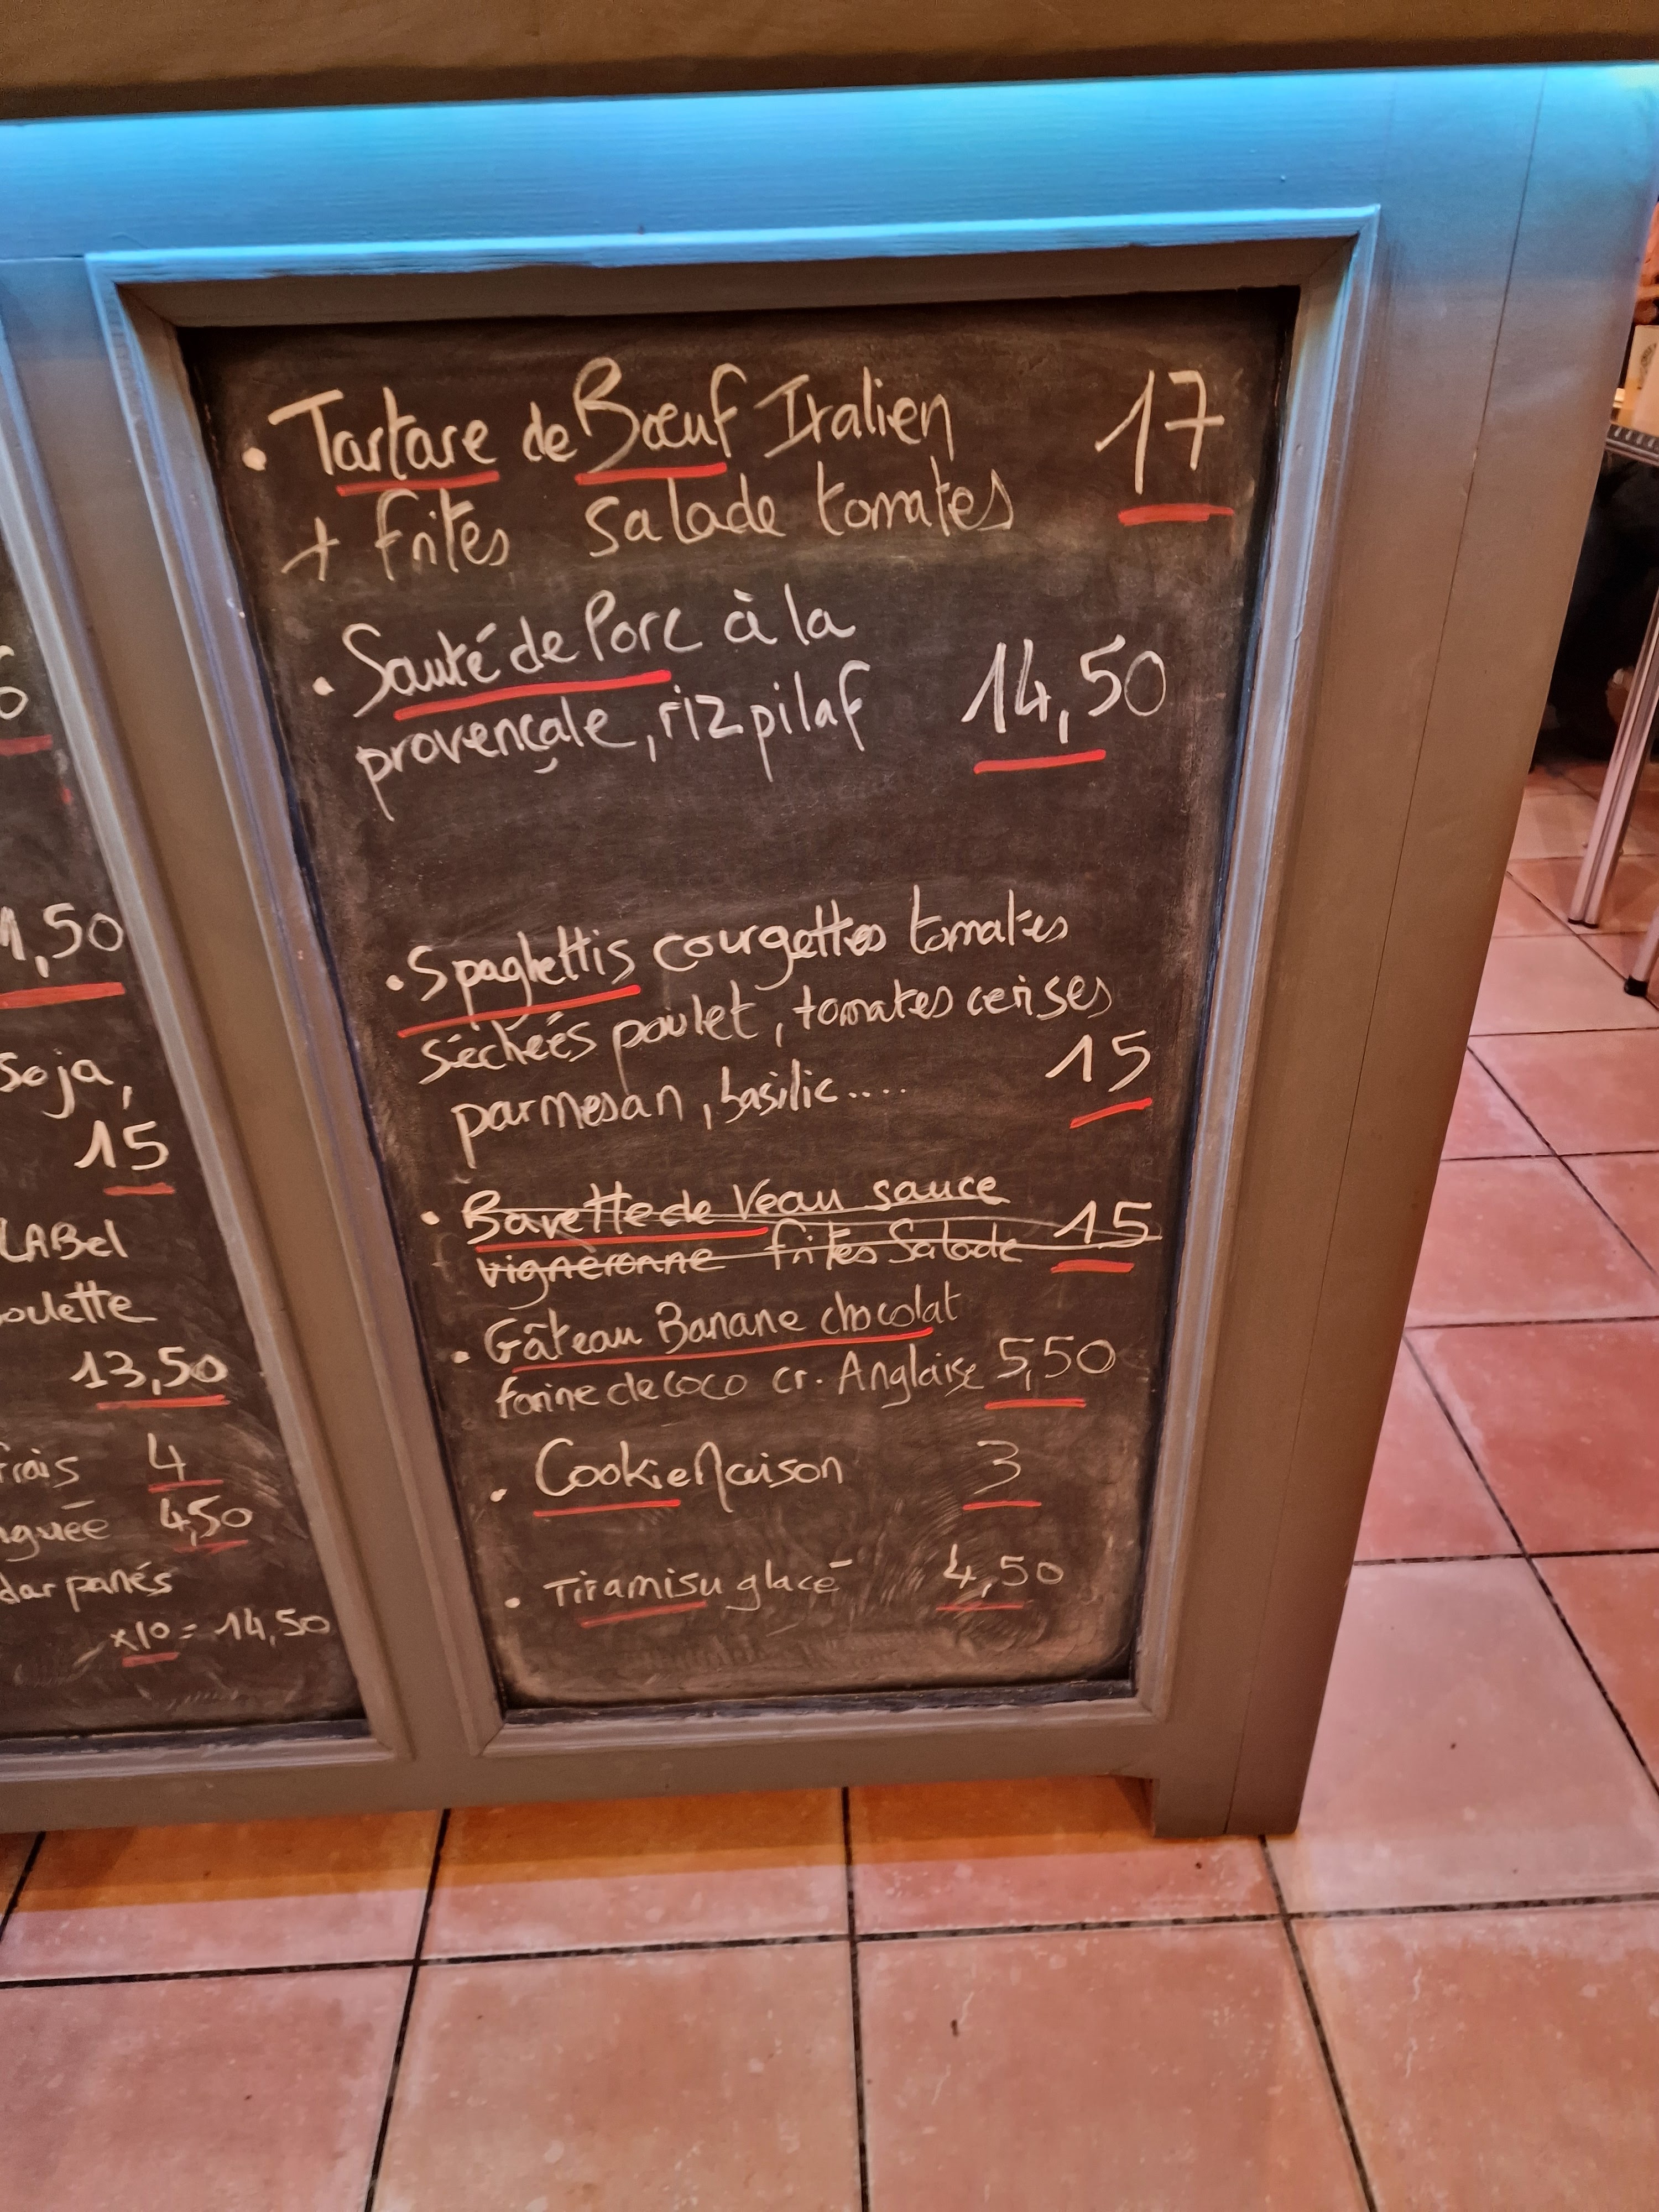 • Tartare de Bœuf Italien 17
+ frites salade tomates
• Sauté de Porc à la
provençale, riz pilaf 14,50
• Spaghettis courgettes tomates
séchées poulet, tomates cerises
parmesan, basilic.... 15
• Bavette de Veau sauce
vigneronne frites Salade 15
• Gâteau Banane chocolat
farine de coco cr. Anglaise 5,50
• Cookie Maison 3
• Tiramisu glacé 4,50
,50
Soja,
15
LABel
13,50
frais 4
4,50
panés
x10 = 14,50